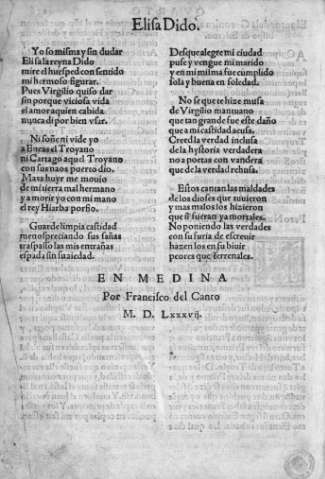 Elisa Dido.
Yo so misma y sin dudar
Elisa la reyna Dido
mire el huesped con sentido
mi hermoso figurar.
Pues Virgilio quiso dar
sin porque viciosa vida
el amor a quien cabida
nunca di por bien vsar.
Ni soñe ni vide yo
a Eneas el Troyano
ni Cartago aquel Troyano
con sus naos puerto dio.
Mas huyr me mouio
de mi tierra mal hermano
y a morir yo con mi mano
el rey Hiarba porfio.
Guarde limpia castidad
menospreciando sus sañas
traspasso las mis entrañas
espada sin
Desque alegre mi ciudad
puse y vengue mi marido
y en mi misma fue cumplido
sola y buena en soledad.
No se que te hize musa
de Virgilio mantuano
que tan grande fue este daño
que a mi castidad acusa.
Creed la verdad inclusa
de la hystoria verdadera
no a poetas con vandera
que de la verdad rehusa.
Estos cantan las maldades
de los dioses que viuieron
y mas malos los hizieron
que si fueran ya mortales.
No poniendo las verdades
con su furia de escreuir
hazen los en su biuir
peores que terrenales.
EN MEDINA
Por Francisco del Canto
M. D. Lxxxvij.